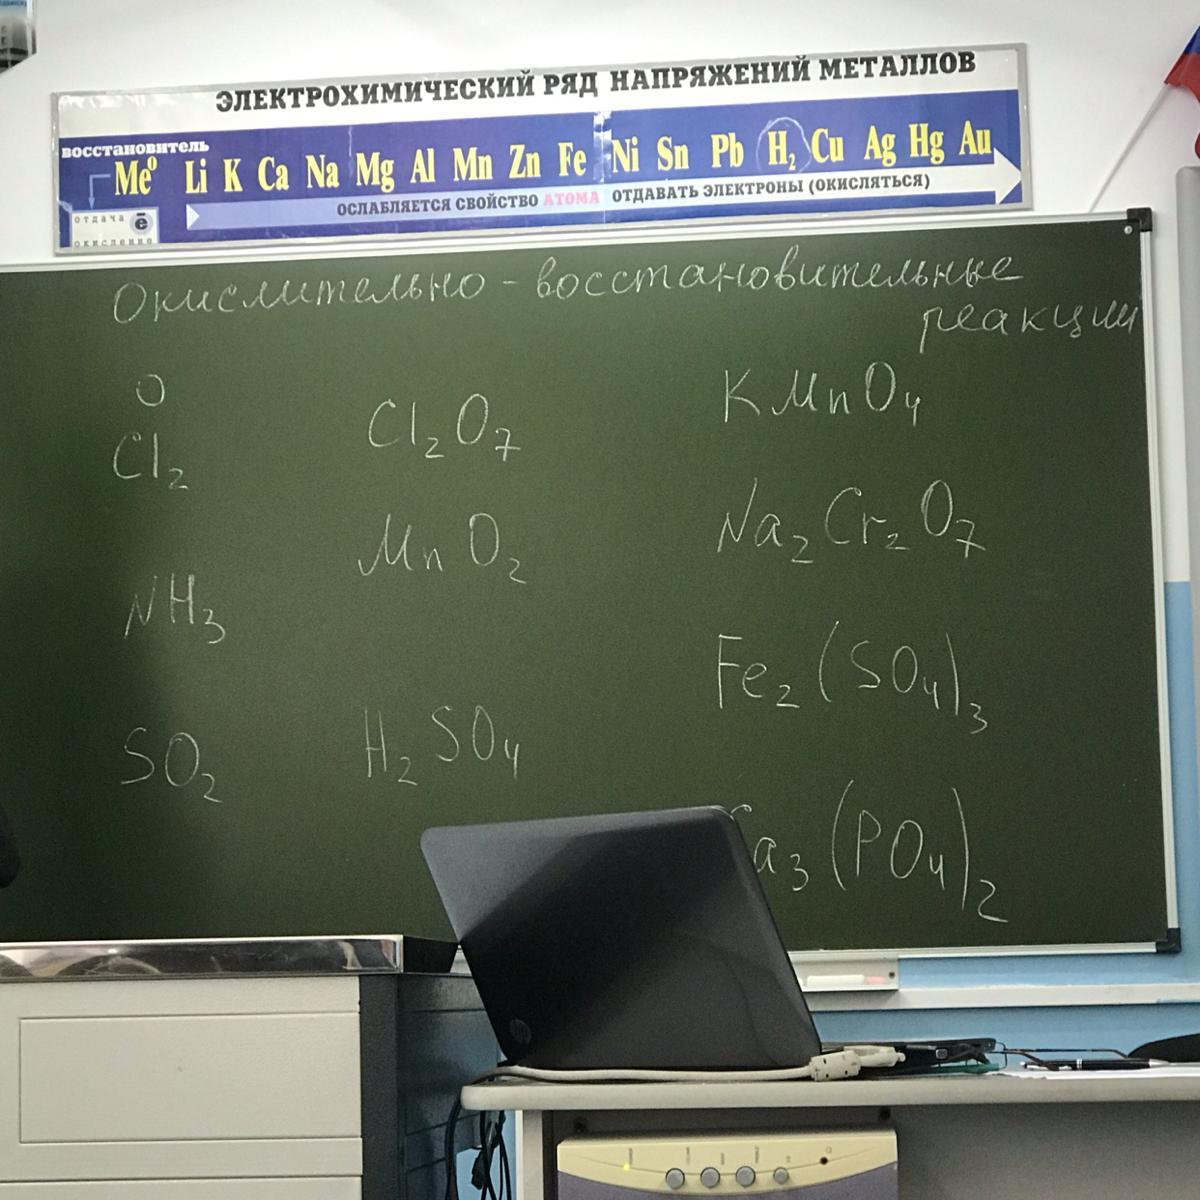 ЭЛЕКТРОХИМИЧЕСКИЙ РЯД НАПРЯЖЕНИЙ МЕТАЛЛОВ
ВОССТАНОВИТЕЛЬ
Me⁰ Li K Ca Na Mg Al Mn Zn Fe Ni Sn Pb H₂ Cu Ag Hg Au
ОСЛАБЛЯЕТСЯ СВОЙСТВО АТОМА ОТДАВАТЬ ЭЛЕКТРОНЫ (ОКИСЛЯТЬСЯ)
отдача ē
окисление
Окислительно - восстановительные
реакции
0
Cl₂
Cl₂O₇
KMnO₄
MnO₂
Na₂Cr₂O₇
NH₃
Fe₂(SO₄)₃
SO₂
H₂SO₄
Ca₃(PO₄)₂